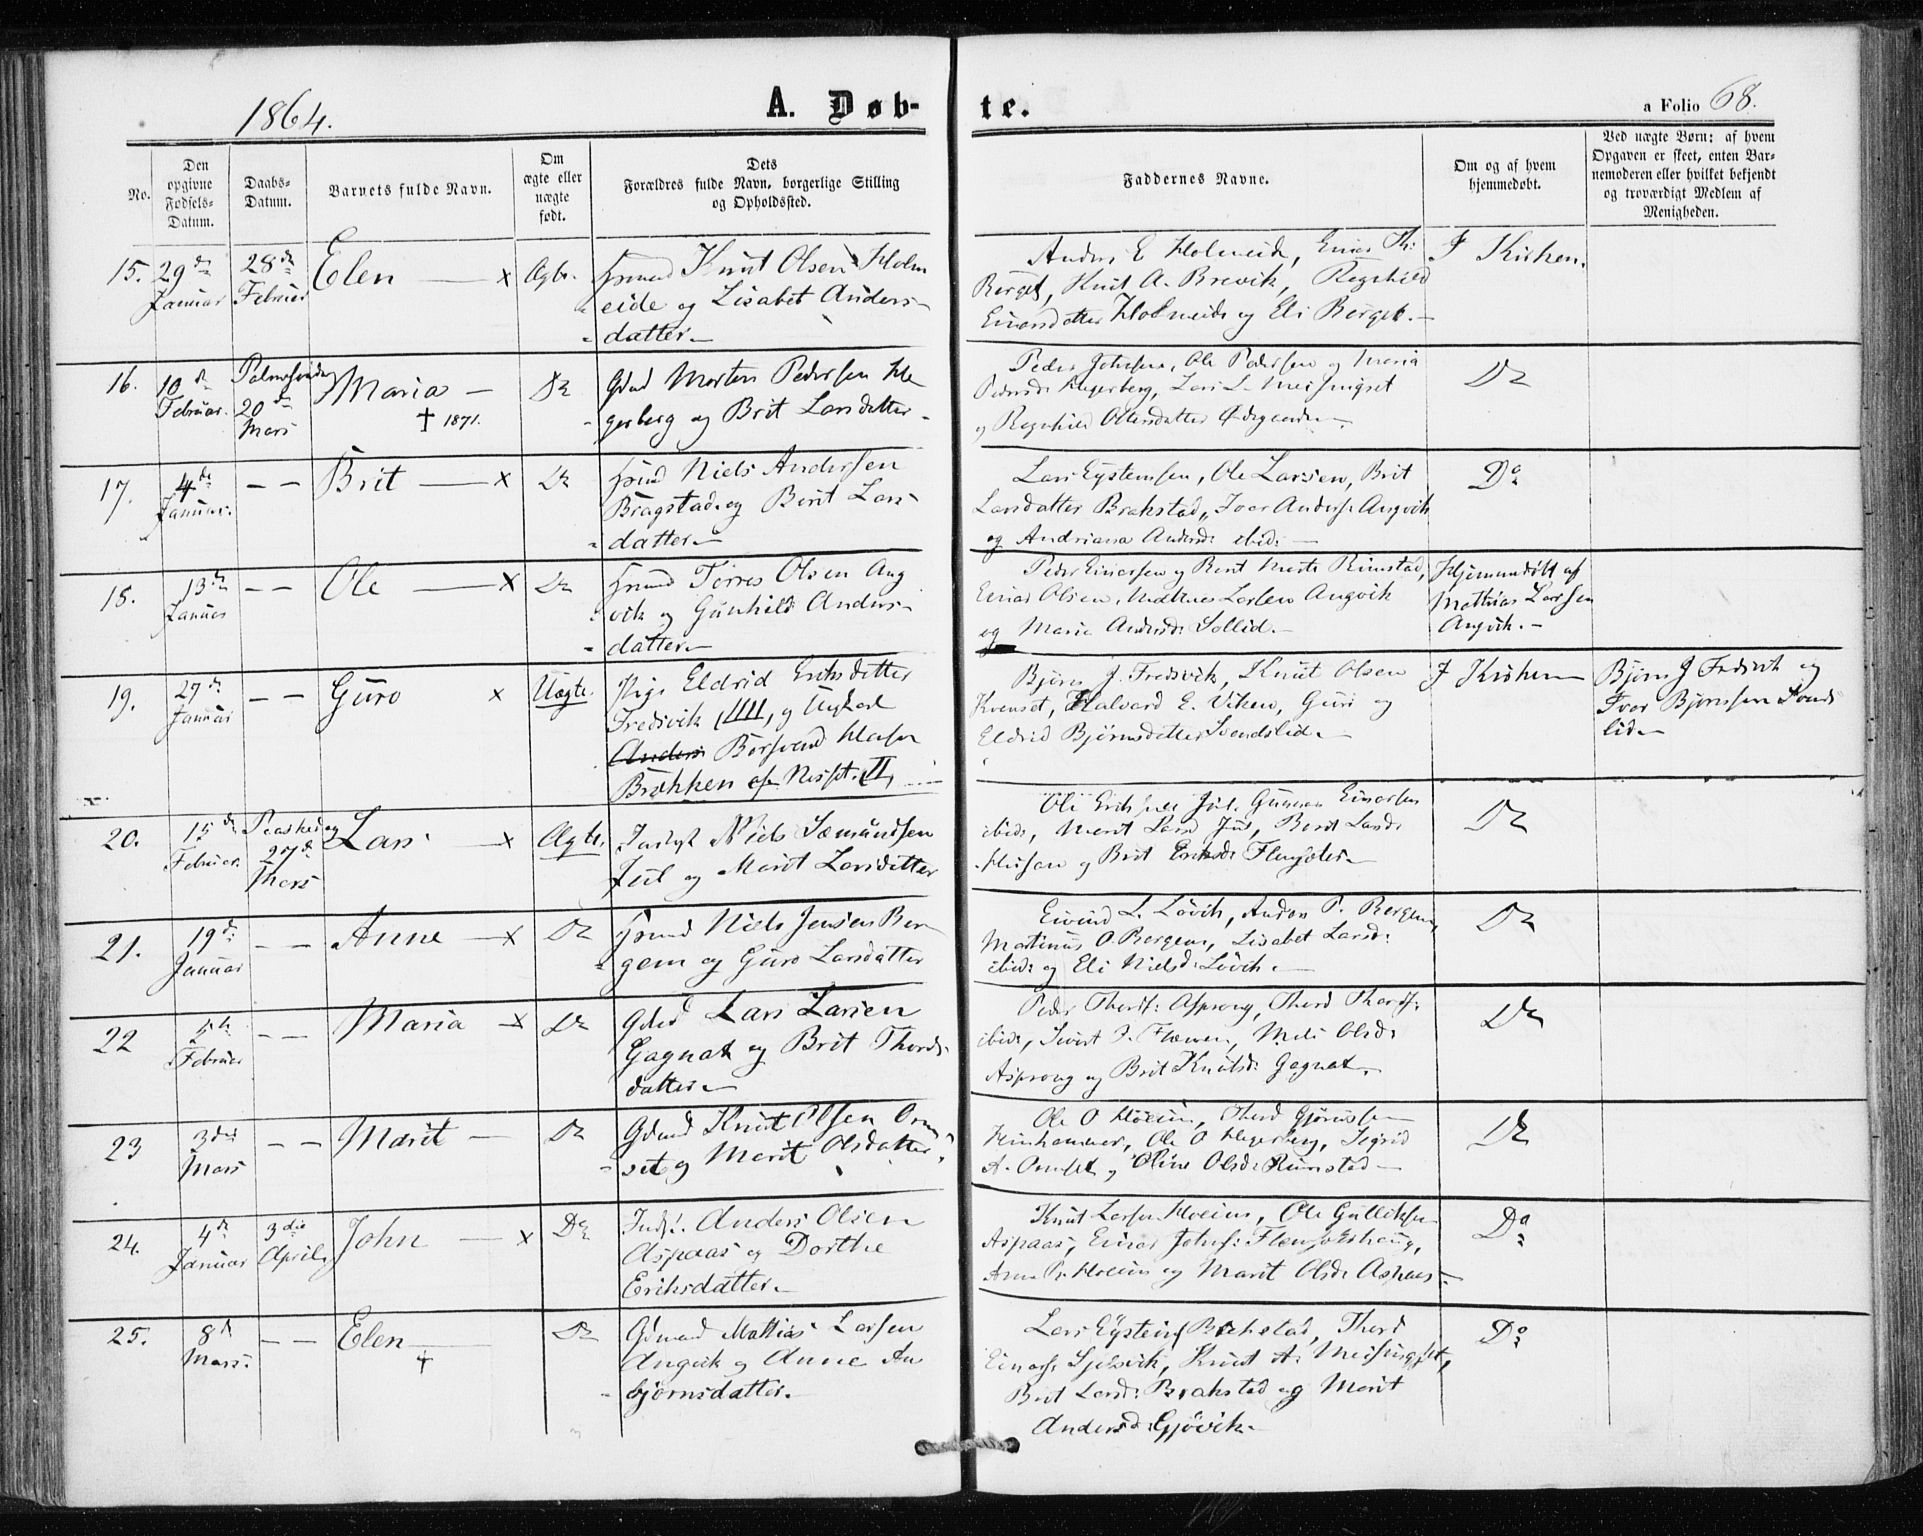 1864.
A. Døb-
te.
a Folio 68.
No.
Den
opgivne
Fødsels-
Datum.
Daabs-
Datum.
Barnets fulde Navn.
Om
ægte eller
uægte
født.
Dets
Forældres fulde Navn, borgerlige Stilling
og Opholdssted.
Faddernes Navne.
Om og af hvem
hjemmedøbt.
Ved uægte Børn: af hvem
Opgaven er skeet, enten Bar-
nemoderen eller hvilket bekjendt
og troværdigt Medlem af
Menigheden.
15. 29 de
Januar
28 de
Februar
Elen x
Ægte
Knut Olsen Holm
eide og Lisabet Anders-
datter
Anders E Holmeide,
Berget, Knut A. Brevik, Ragnhild
Einarsdatter Holmeide og Eli Berget.
I Kirken.
16. 10 d
Februar.
Palmesøndag
20 de
Mars
Maria
† 1871.
Do
Gdmd Morten Pedersen He
gerberg og Brit Larsdatter
Peder Johnsen, Ole Pedersen og Maria
Pedersd: Hegerberg, Lars L. Meisingset
og Ragnhild Ødegaard
Do
17. 4 de
Januar.
Brit x
Do
Niels Andersen
Bragstad og Berit Lars-
datter
Lars Eysteinsen, Ole Larsen, Brit
Larsdatter Brakstad, Ivar Anders: Angvik
og Andriana Andersd: ibid:
Do
18. 13 de
Januar
Ole x
Do
Torres Olsen Ang
vik og Gunhild Anders-
datter
Peder Einarsen og Berit Rimstad,
Einar Olsen, Mathias Larsen Angvik
og Maria Andersd: Sollid.
Hjemmedøbt af
Mathias Larsen
Angvik.
19. 27 de
Januar
Guro x
Uægte.
Pige Eldrid Eriksdatter
Fredsvik og Ungkarl
Anders
Brækken
Bjørn J. Fredsvik, Knut Olsen
Kvenset, Halvard E. Viken, Guri og
Eldrid Bjørnsdatter Svendslid.
I Kirken
Bjørn J Fredsvik og
Ivar Bjørnsen Svends
lid
20. 15 de
Februar.
Paaskedag
27 de
Mars
Lars x
Ægte.
Niels Sæmundsen
Jul og Marit Larsdatter
Ole Eriksen Jul, Gunnar Einarsen
ibid:, Marit Larsd Jul, Berit Larsd:
og Brit Eriksd:
Do
21. 19 de
Januar
Anne x
Do
Niels Jensen Ber
gem og Guro Larsdatter
Eivind L. Løvik, Anders P. Bergem,
Martinus O. Bergem, Lisabet Larsd:
ibid: og Eli Nielsd: Løvik.
Do
22
Februar
Maria x
Do
Gdmd Lars Larsen
Gagnat og Brit Thords-
datter
Peder Thords: Asprong, Thord Thords:
ibid:, Olsd:
Asprong og Brit Knutsd: Gagnat.
Do
23 3 die
Mars
Marit
Do
Gdmd Knut Olsen Orm
set og Marit Olsdatter
Ole O Høeim, Thord Gjørussen
Ole O Hegerberg, Sigrid
A. Ormset og Oline Olsd: Rimstad
Do
24. 4 d
Januar
3 die
April.
John x
Do
Inds. Anders Olsen
Aspaas og Dorthe
Eriksdatter
Knut Larsen Høeim, Ole Gulliksen
Aspaas, Einar Johns: Flemsætshaug,
Høeim og Marit Olsd: Aspaas
Do
25. 8 d
Mars.
Elen
†
Do
Gdmand Mattias Larsen
Angvik og Anne An
bjørnsdatter.
Lars Eysteins Brakstad, Thord
Einars: Knut A: Meisingset,
Brit Larsd: Brakstad og Marit
Andersd: Gjøvik.
Do